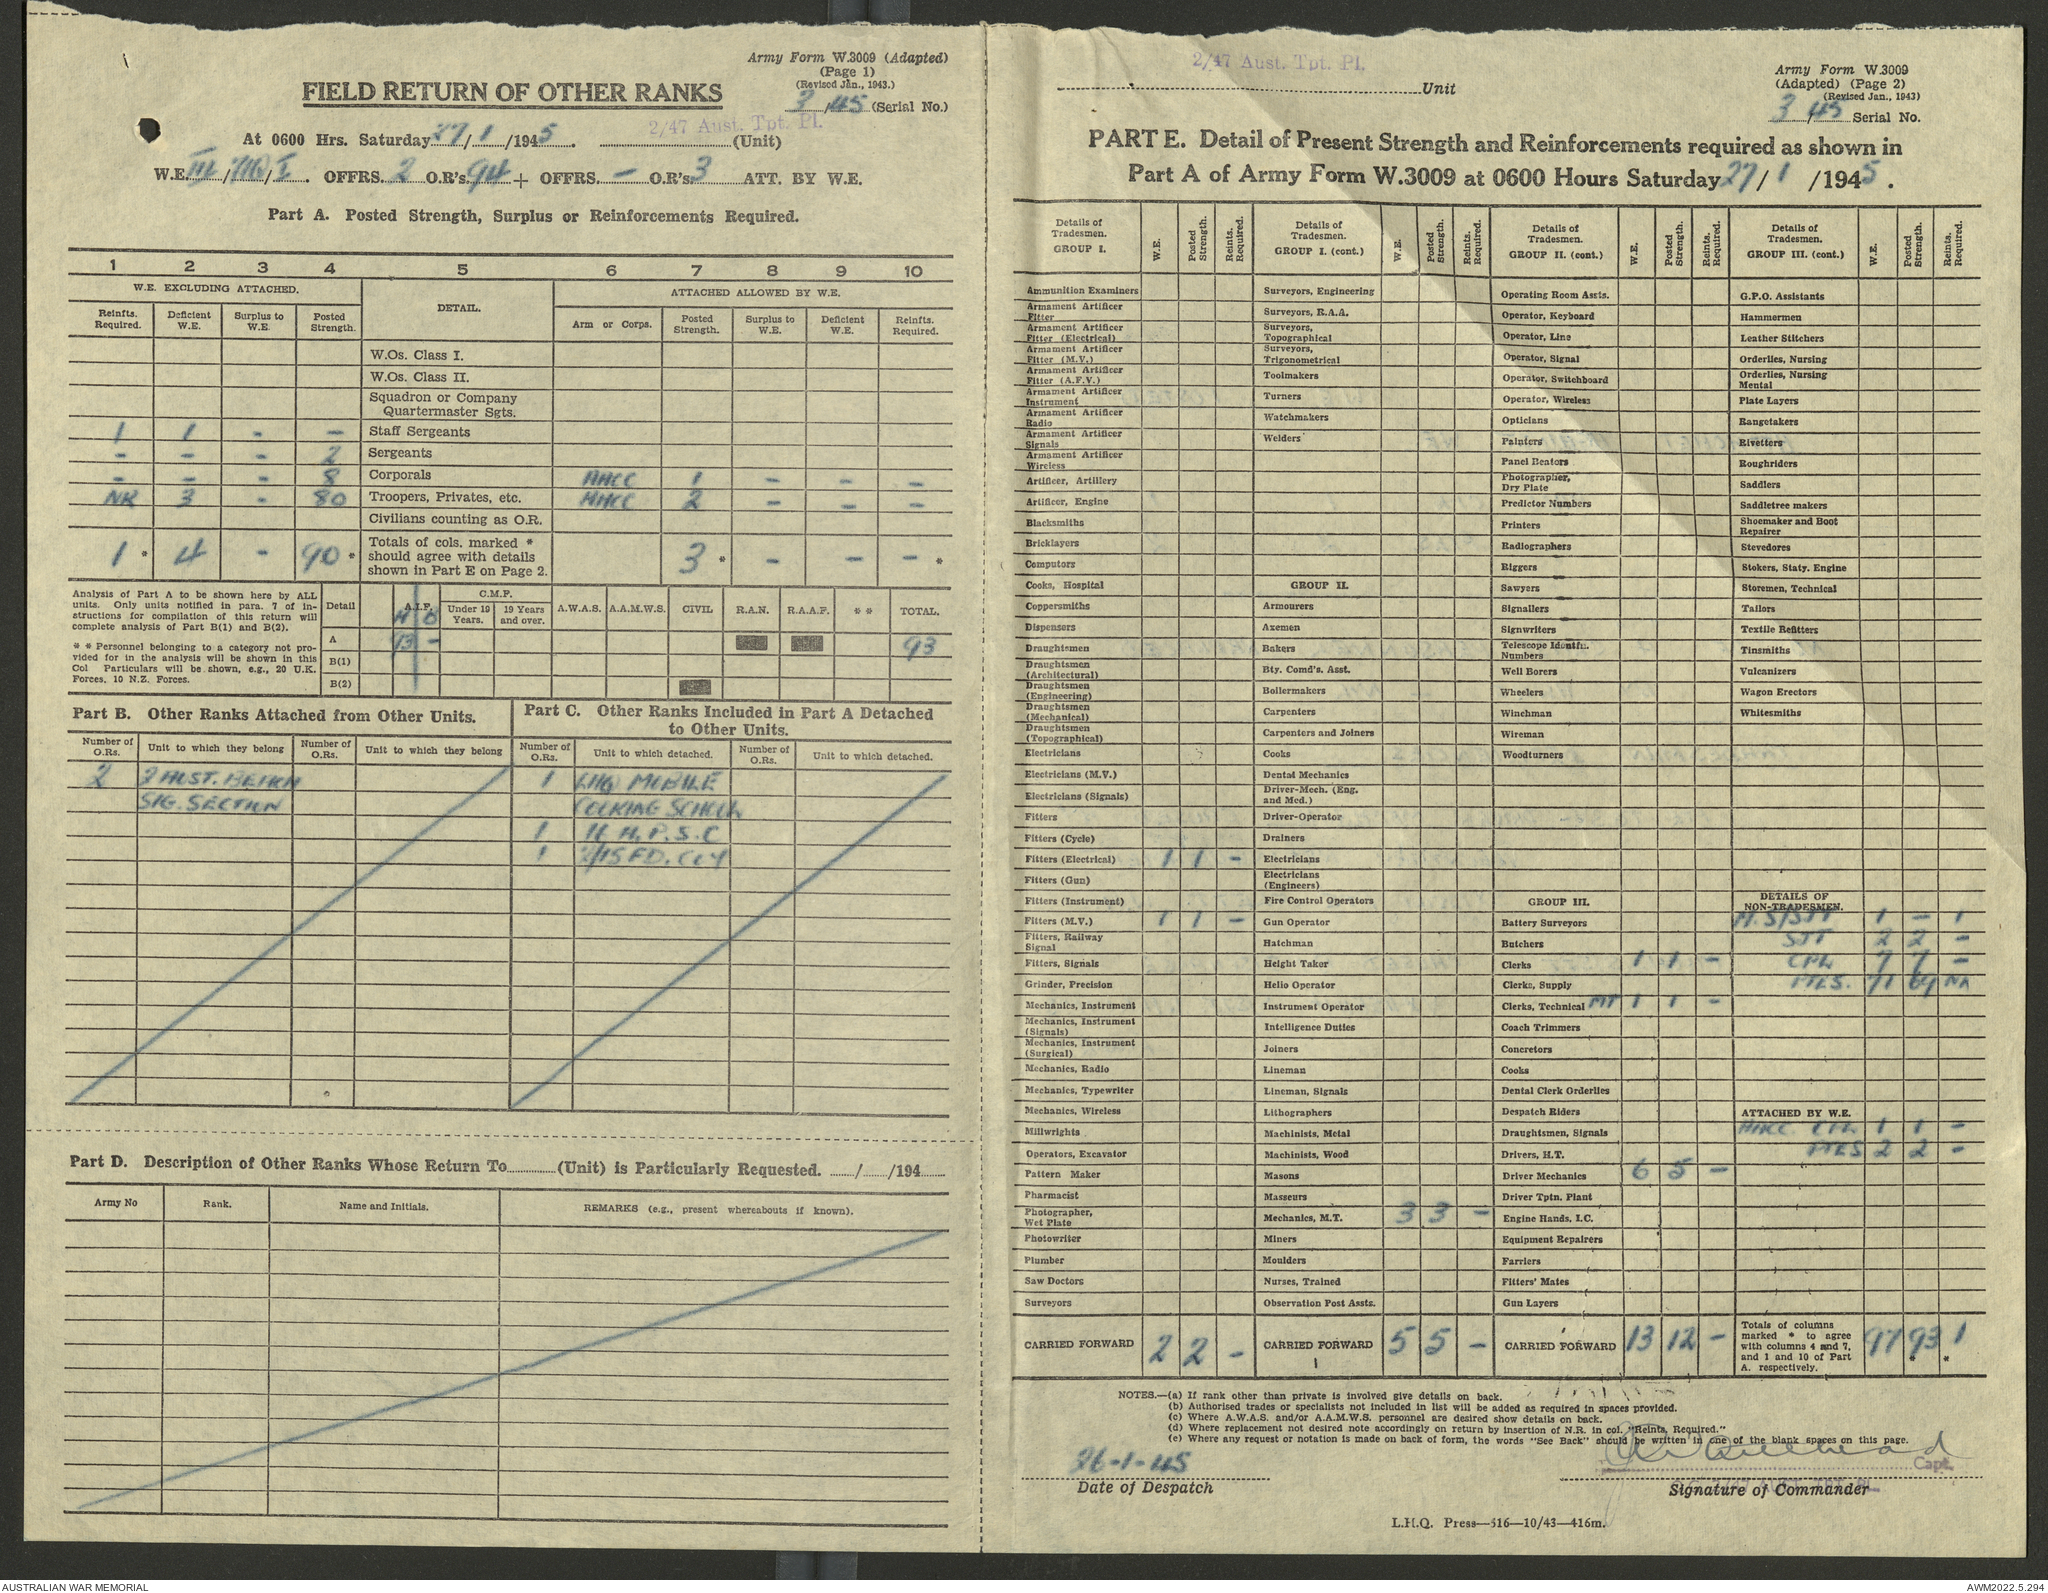 Army Form W.3009 (Adapted)
(Page 1)
(Revised Jan., 1943.)
FIELD RETURN OF OTHER RANKS
3/45 (Serial No.)
2/47 Aust. Tpt. Pl.
At 0600 Hrs. Saturday 27/1/1945. (Unit)
W.E. III/ /I. OFFRS. 2 O.R's. 94 + OFFRS. – O.R's. 3 ATT. BY W.E.
Part A. Posted Strength, Surplus or Reinforcements Required.
1 2 3 4 5 6 7 8 9 10
W.E. EXCLUDING ATTACHED. DETAIL. ATTACHED ALLOWED BY W.E.
Reinfts. Required. Deficient W.E. Surplus to W.E. Posted Strength. Arm or Corps. Posted Strength. Surplus to W.E. Deficient W.E. Reinfts. Required.
W.Os. Class I.
W.Os. Class II.
Squadron or Company Quartermaster Sgts.
1 1 - – Staff Sergeants
- - - 2 Sergeants
- - - 8 Corporals AACC 1 - - -
NR 3 - 80 Troopers, Privates, etc. AACC 2 - - -
Civilians counting as O.R.
1 * 4 - 90 * Totals of cols. marked * should agree with details shown in Part E on Page 2. 3 * - - - *
Analysis of Part A to be shown here by ALL units. Only units notified in para. 7 of instructions for compilation of this return will complete analysis of Part B(1) and B(2).
* * Personnel belonging to a category not provided for in the analysis will be shown in this Col Particulars will be shown, e.g., 20 U.K. Forces, 10 N.Z. Forces.
Detail A.I.F. C.M.F. Under 19 Years. 19 Years and over. A.W.A.S. A.A.M.W.S. CIVIL R.A.N. R.A.A.F. * * TOTAL.
A B
A 93 - 93
B(1)
B(2)
Part B. Other Ranks Attached from Other Units.
Number of O.Rs. Unit to which they belong Number of O.Rs. Unit to which they belong
2 2 AUST. BEACH
SIG. SECTION
Part C. Other Ranks Included in Part A Detached to Other Units.
Number of O.Rs. Unit to which detached. Number of O.Rs. Unit to which detached.
1 LHQ MOBILE
COOKING SCHOOL
1 H.P.S.C
1 2/15 FD. COY
Part D. Description of Other Ranks Whose Return To (Unit) is Particularly Requested. / /194
Army No Rank. Name and Initials. REMARKS (e.g., present whereabouts if known).
2/47 Aust. Tpt. Pl.
Unit
Army Form W.3009
(Adapted) (Page 2)
(Revised Jan., 1943)
3/45 Serial No.
PART E. Detail of Present Strength and Reinforcements required as shown in
Part A of Army Form W.3009 at 0600 Hours Saturday 27/1/1945.
Details of Tradesmen. GROUP I. W.E. Posted Strength. Reints. Required.
Ammunition Examiners
Armament Artificer Fitter
Armament Artificer Fitter (Electrical)
Armament Artificer Fitter (M.V.)
Armament Artificer Fitter (A.F.V.)
Armament Artificer Instrument
Armament Artificer Radio
Armament Artificer Signals
Armament Artificer Wireless
Artificer, Artillery
Artificer, Engine
Blacksmiths
Bricklayers
Computors
Cooks, Hospital
Coppersmiths
Dispensers
Draughtsmen
Draughtsmen (Architectural)
Draughtsmen (Engineering)
Draughtsmen (Mechanical)
Draughtsmen (Topographical)
Electricians
Electricians (M.V.)
Electricians (Signals)
Fitters
Fitters (Cycle)
Fitters (Electrical) 1 1 -
Fitters (Gun)
Fitters (Instrument)
Fitters (M.V.) 1 1 -
Fitters, Railway Signal
Fitters, Signals
Grinder, Precision
Mechanics, Instrument
Mechanics, Instrument (Signals)
Mechanics, Instrument (Surgical)
Mechanics, Radio
Mechanics, Typewriter
Mechanics, Wireless
Millwrights
Operators, Excavator
Pattern Maker
Pharmacist
Photographer, Wet Plate
Photowriter
Plumber
Saw Doctors
Surveyors
CARRIED FORWARD 2 2 -
Details of Tradesmen. GROUP I. (cont.) W.E. Posted Strength. Reints. Required.
Surveyors, Engineering
Surveyors, R.A.A.
Surveyors, Topographical
Surveyors, Trigonometrical
Toolmakers
Turners
Watchmakers
Welders
GROUP II.
Armourers
Axemen
Bakers
Bty. Comd's. Asst.
Boilermakers
Carpenters
Carpenters and Joiners
Cooks
Dental Mechanics
Driver-Mech. (Eng. and Med.)
Driver-Operator
Drainers
Electricians
Electricians (Engineers)
Fire Control Operators
Gun Operator
Hatchman
Height Taker
Helio Operator
Instrument Operator
Intelligence Duties
Joiners
Lineman
Lineman, Signals
Lithographers
Machinists, Metal
Machinists, Wood
Masons
Masseurs
Mechanics, M.T. 3 3 -
Miners
Moulders
Nurses, Trained
Observation Post Assts.
CARRIED FORWARD 5 5 -
Details of Tradesmen. GROUP II. (cont.) W.E. Posted Strength. Reints. Required.
Operating Room Assts.
Operator, Keyboard
Operator, Line
Operator, Signal
Operator, Switchboard
Operator, Wireless
Opticians
Painters
Panel Beaters
Photographer, Dry Plate
Predictor Numbers
Printers
Radiographers
Riggers
Sawyers
Signallers
Signwriters
Telescope Identfn. Numbers
Well Borers
Wheelers
Winchman
Wireman
Woodturners
GROUP III.
Battery Surveyors
Butchers
Clerks 1 1 -
Clerks, Supply
Clerks, Technical MT 1 1 -
Coach Trimmers
Concretors
Cooks
Dental Clerk Orderlies
Despatch Riders
Draughtsmen, Signals
Drivers, H.T.
Driver Mechanics 6 5 -
Driver Tptn. Plant
Engine Hands, I.C.
Equipment Repairers
Farriers
Fitters' Mates
Gun Layers
CARRIED FORWARD 13 12 -
Details of Tradesmen. GROUP III. (cont.) W.E. Posted Strength. Reints. Required.
G.P.O. Assistants
Hammermen
Leather Stitchers
Orderlies, Nursing
Orderlies, Nursing Mental
Plate Layers
Rangetakers
Rivetters
Roughriders
Saddlers
Saddletree makers
Shoemaker and Boot Repairer
Stevedores
Stokers, Staty. Engine
Storemen, Technical
Tailors
Textile Refitters
Tinsmiths
Vulcanizers
Wagon Erectors
Whitesmiths
DETAILS OF NON-TRADESMEN.
1 – 1
SJT 2 2 -
CPL 7 7 -
PTES. 71 69 NR
ATTACHED BY W.E.
AACC CPL 1 1 -
PTES 2 2 -
Totals of columns marked * to agree with columns 4 and 7, and 1 and 10 of Part A. respectively. 97 93 * 1 *
NOTES.—(a) If rank other than private is involved give details on back.
(b) Authorised trades or specialists not included in list will be added as required in spaces provided.
(c) Where A.W.A.S. and/or A.A.M.W.S. personnel are desired show details on back.
(d) Where replacement not desired note accordingly on return by insertion of N.R. in col. "Reints, Required."
(e) Where any request or notation is made on back of form, the words "See Back" should be written in one of the blank spaces on this page.
26-1-45
Capt.
Date of Despatch
Signature of Commander
L.H.Q. Press—516—10/43—416m.
AUSTRALIAN WAR MEMORIAL
AWM2022.5.294